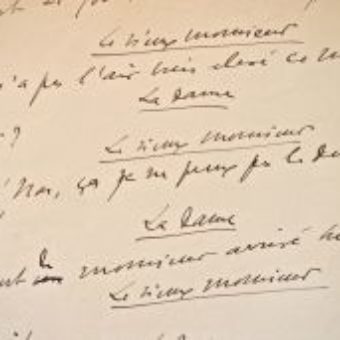 Le vieux monsieur
n'a pas l'air bien élevé ce m
La Dame
?
Le vieux monsieur
Non, ça je ne peux pas le d
La Dame
monsieur arrivé
Le vieux monsieur